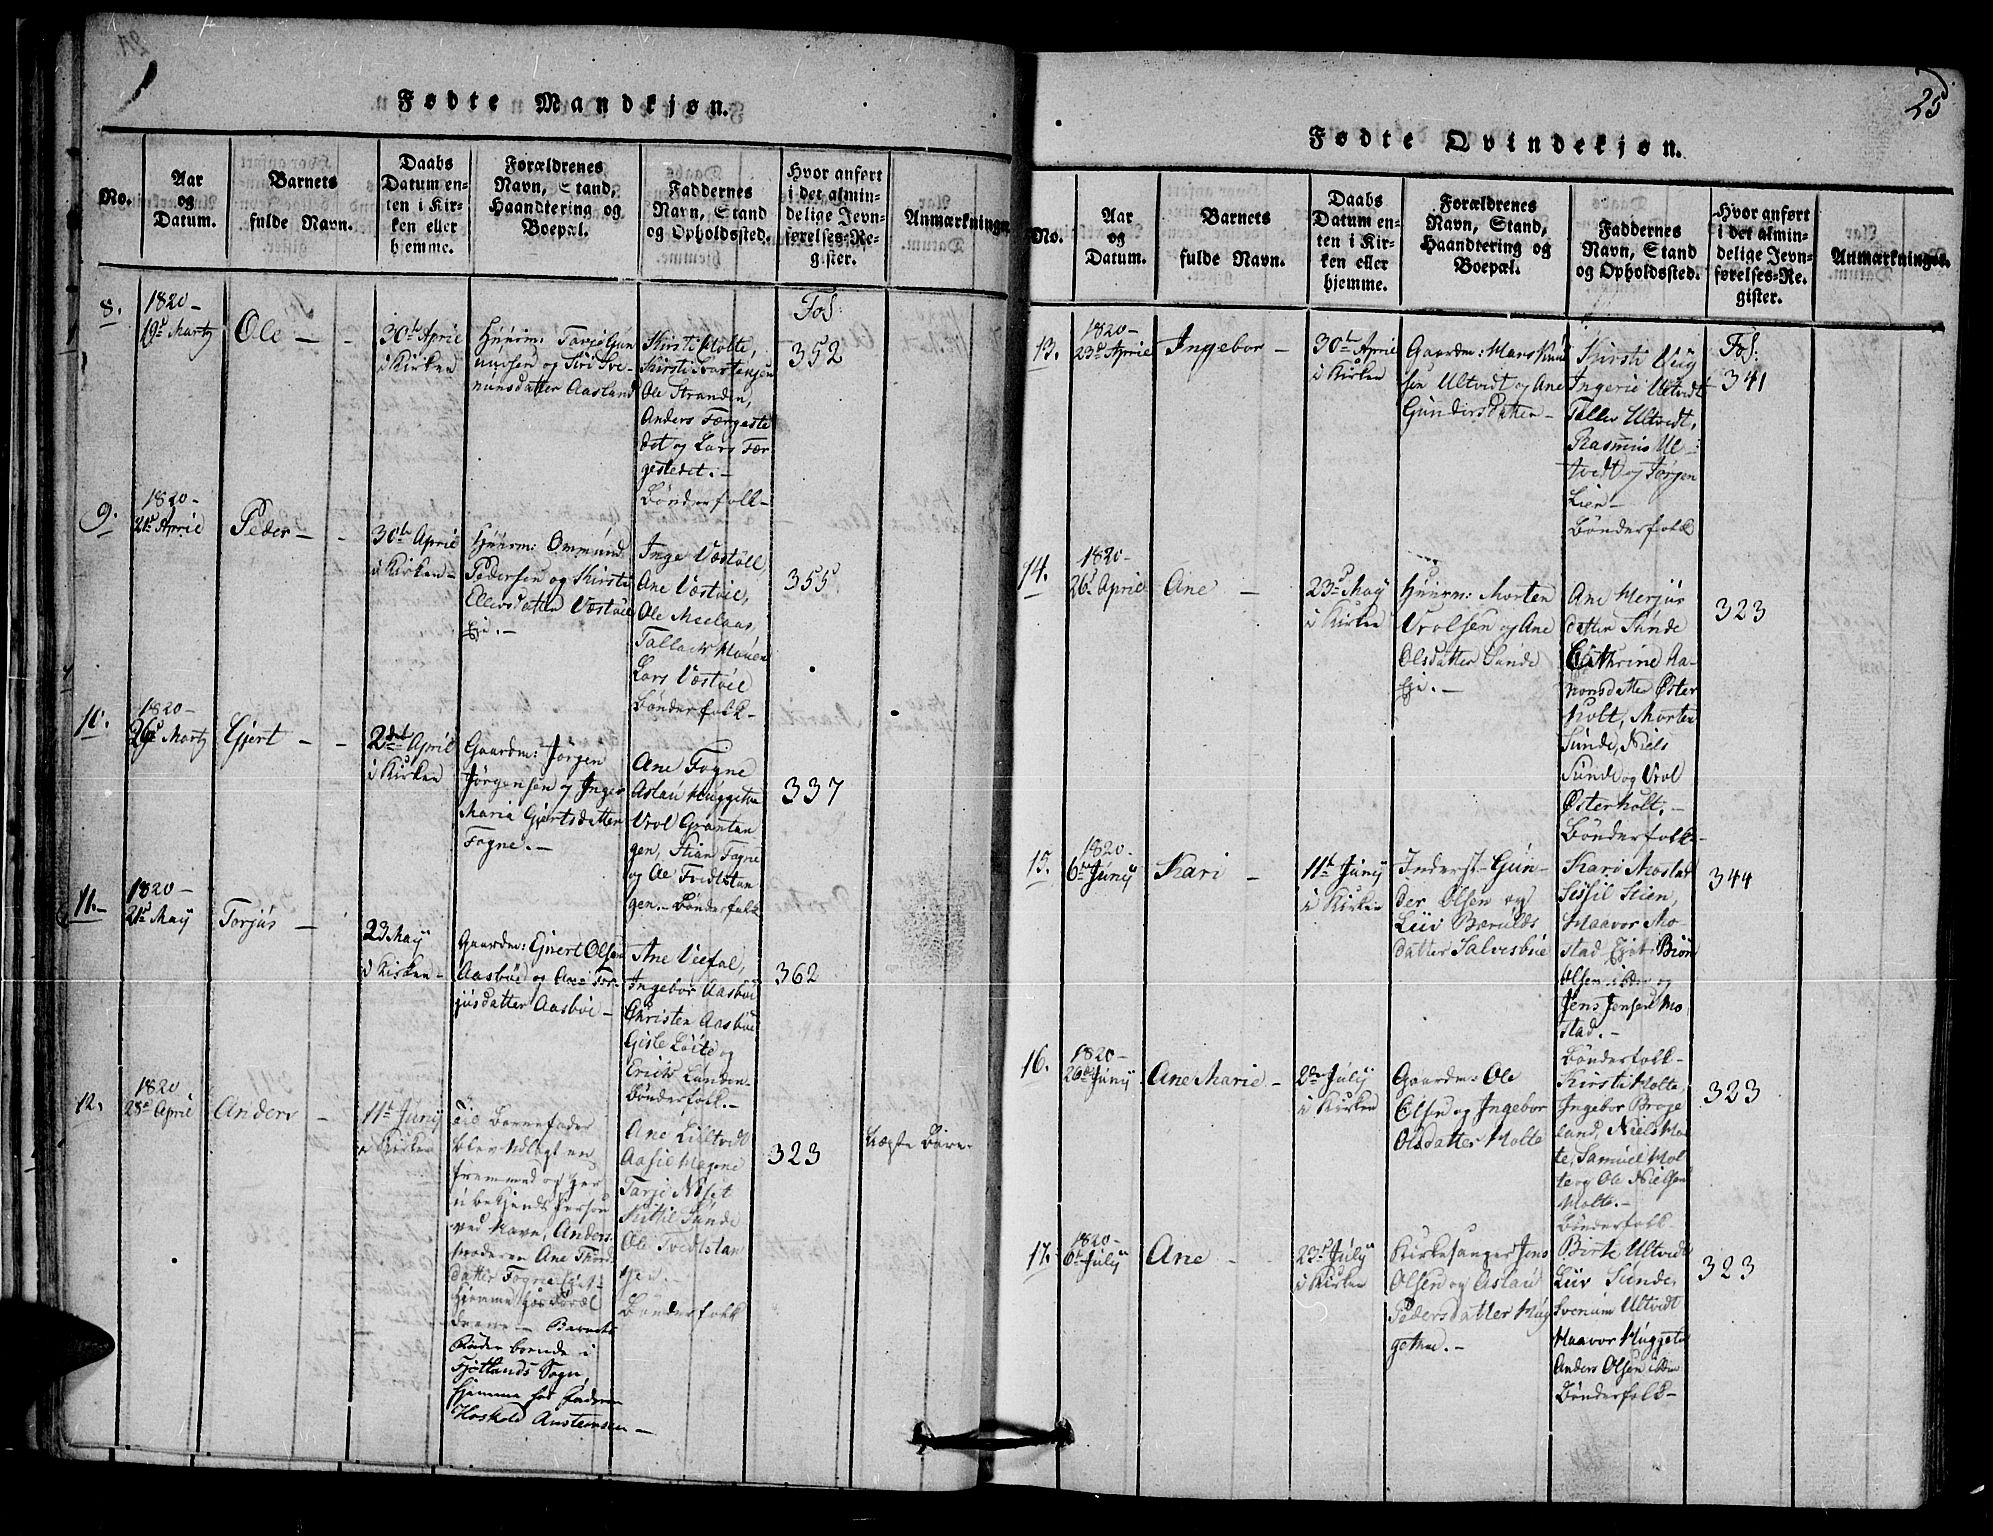 Fødte Mandkjøn.
No.
Aar
og
Datum.
Barnets
fulde Navn.
Daabs
Datum en-
ten i Kir-
ken eller
hjemme.
Forældrenes
Navn, Stand,
Haandtering og
Boepæl.
Faddernes
Navn, Stand
og Opholdssted.
Hvor anført
i det almin-
delige Jevn-
førelses-Re-
gister.
Anmærkninger
8.
1820-
19d Martz
Ole -
30te April
i Kirken
Huusm: Tarje Gun
nuvsen og Siri Sve-
nunsdatter Aasland
Kirsti Molte,
Kirsti
Ole Stranden,
Anders Færgeste
det og Lars Fær
gestedet. -
Bønderfolk-
Fol:
352
9.
1820-
21d April
Peder - -
30te April
i Kirken-
Huusm: Ommund
Pedersen og Kirsti
Ellevsdatter Vestøl
Eje. -
Inge Vestøl
Ane Vestøl,
Ole Meelaas,
Tallack Mouen
Lars Vestøl
Bønderfolk-
355
10.
1820-
26d Martz
Gjert - -
2den April
i Kirken
Gaardm: Jørgen
Jørgensen og Inger
Maria Gjertsdatter
Fogne. -
Ane Fogne
Aslau Huggetve
Vrol Grantan
gen, Stian Fogne
og Ole Tvedtstan
gen. - Bønderfolk
337
11.-
1820-
21d May
Torjus -
23 May
i Kirken-
Gaardm: Gjert Olsen
Aasbøe og Ane Tor-
jusdatter Aasbøe -
Ane Veefal,
Ingebor Aasbøe
Christen Aasbøe
Gisle Løite og
Erick Lunden-
Bønderfolk. -
362
12.
1820
28d April
Anders -
11te Juny
i Kirken
Til Barnefader
blev udlagt en
fremmed og her
ubekjendt Person
ved Navn, Anders
Moderen Ane Thor
datter Fogne Eje
hjemme hos Foræl
drene - Barnets
Fader boende i
Fjotlands Sogn,
hjemme hos Faderen
Hoskold Aanstensen -
Ane Lilltvedt
Aasil Megene
Tarje Neset
Kittil Sunde
Ole Tvedtstan
gen. -
Bønderfolk
323
Uægte Barn.
25
Fødte Qvindekjøn.
No.
Aar
og
Datum.
Barnets
fulde Navn.
Daabs
Datum en-
ten i Kir-
ken eller
hjemme.
Forældrenes
Navn, Stand,
Haandtering og
Boepæl.
Faddernes
Navn, Stand
og Opholdssted.
Hvor anført
i det almin-
delige Jevn-
førelses-Re-
gister.
Anmærkninger.
13.
1820-
23d April
Ingebor -
30te April
i Kirken
Gaardm: Mans Knud
sen Ultvedt og Ane
Gundersdatter -
Kirsti Veig
Ingerie Ultvedt
Tallev Ultvedt,
Rasmus Ul-
tvedt og Jørgen
Lien-
Bønderfolk
Fol:
341
14.
1820-
26d April
Ane -
23d May
i Kirken
Huusm: Morten
Vrolsen og Ane
Olsdatter Sunde
Eje. -
Ane Merjus
datter Sunde
Cathrine Aa-
nonsdatter Øster
holt, Morten
Sunde, Niels
Sunde og Vrol
Østerholt, -
Bønderfolk-
323
15.
1820.
6te Juny
Kari -
11te Juny
i Kirken
Inderst- Gun-
der Olsen og
Liv Baarulds
datter Salvesbøe
Kari Mostad
Sissil Lien,
Haavor Mo-
stad Eje Biøn
Olsen ibdm og
Jens Jensen Mo
stad. -
Bønderfolk-
344
16.
1820-
20de Juny
Ane Marie -
2den July
i Kirken
Gaardm: Ole
Olsen og Ingebor
Olsdatter Molte
Kirsti Molte,
Ingebor Broje
land, Niels Mol-
te, Samuel Mol-
te og Ole Nielsen
Molte. -
Bønderfolk-
323
17.
1820-
6te July
Ane -
23d July
i Kirken
Kirkesanger Jens
Olsen og Aslau
Pedersdatter Hug
getve. -
Birte Ultvedt
Liv Sunde,
Svenum Ultvedt
Haavor Huggetve
Anders Olsen ibdm
Bønderfolk-
323